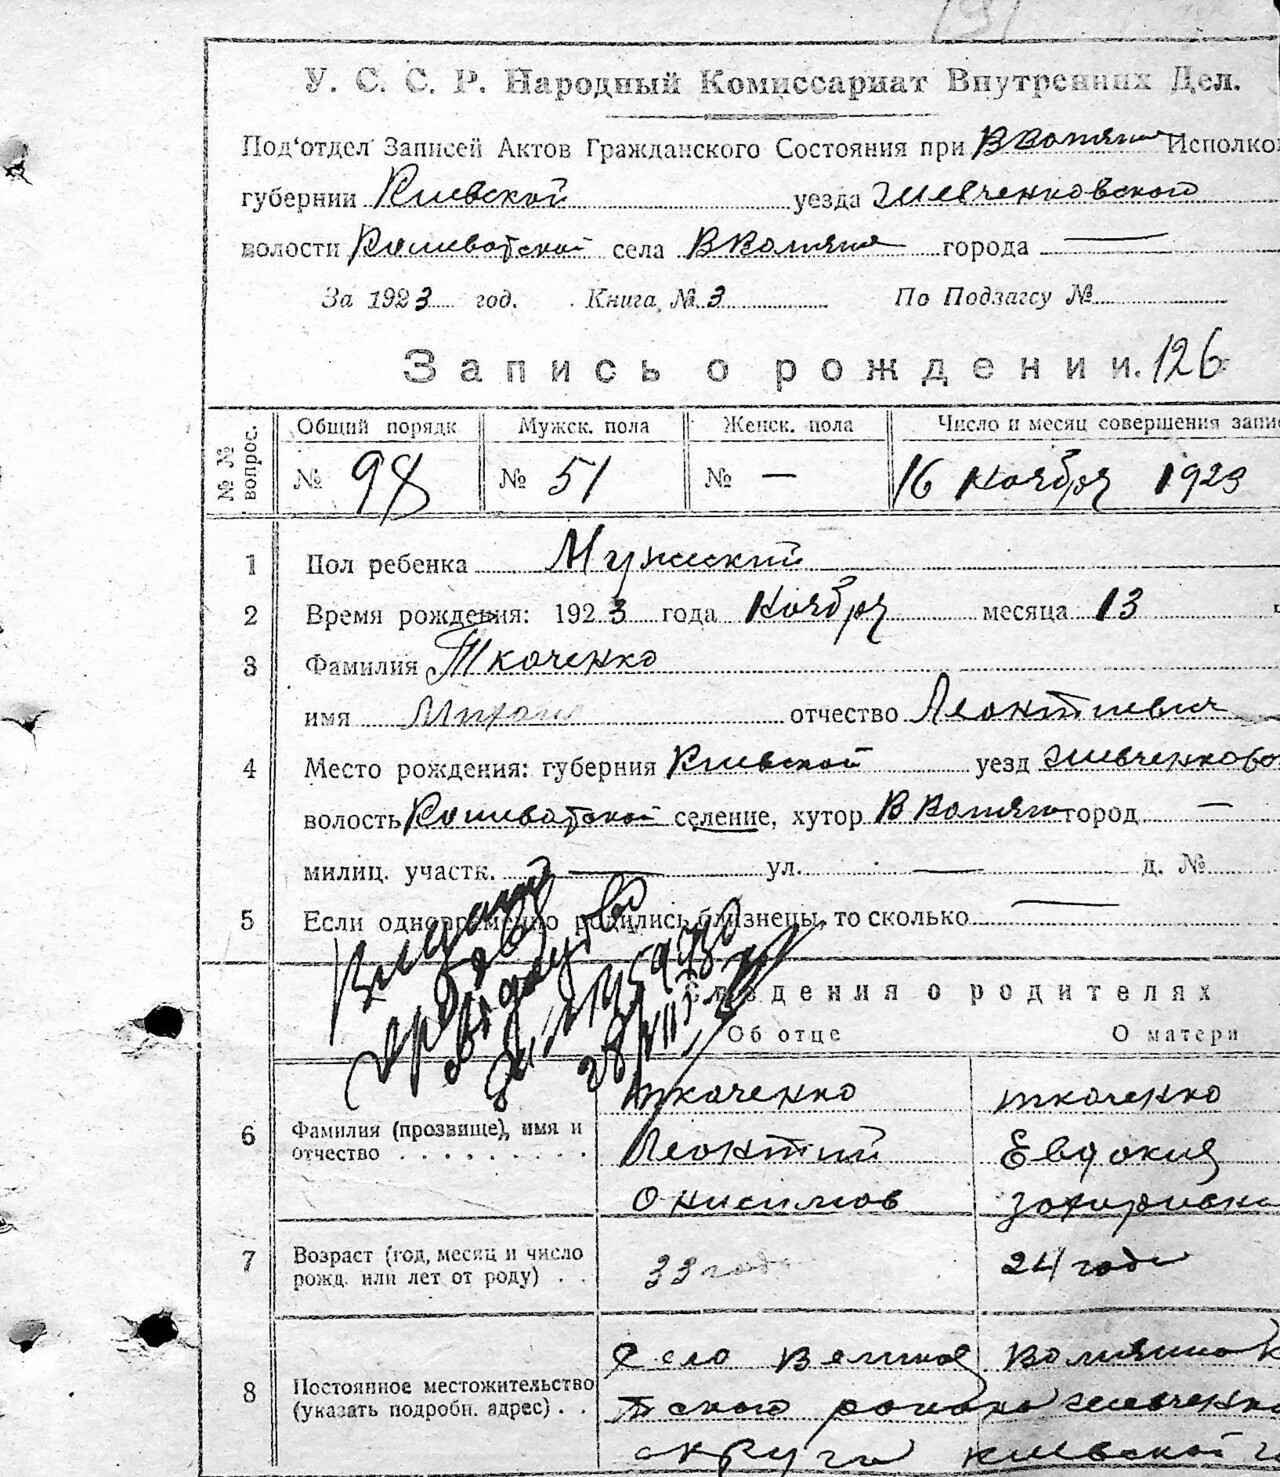 У. С. С. Р. Народный Комиссариат Внутренних Дел.
Под'отдел Записей Актов Гражданского Состояния при Исполко
губернии Киевской уезда Шевченковского
волости села города —
За 1923 год. Книга № 3 По Подзагсу №
Запись о рождении. 126
№№ вопрос. Общий порядк Мужск. пола Женск. пола Число и месяц совершения запис
№ 98 № 51 № — 16 Ноября 1923
1 Пол ребенка Мужский
2 Время рождения: 1923 года Ноября месяца 13
3 Фамилия Ткаченко
имя Михаил отчество Леонтиевич
4 Место рождения: губерния Киевской уезд Шевченково
волость селение, хутор город —
милиц. участк. — ул. — д. №
5 Если одновременно родились близнецы, то сколько —
Сведения о родителях
Об отце О матери
6 Фамилия (прозвище), имя и отчество
Ткаченко Ткаченко
Леонтий Евдокия
Онисимов
7 Возраст (год, месяц и число рожд. или лет от роду)
33 года 24 года
8 Постоянное местожительство (указать подробн. адрес)
Село
тского района Шевченко
округа Киевской г